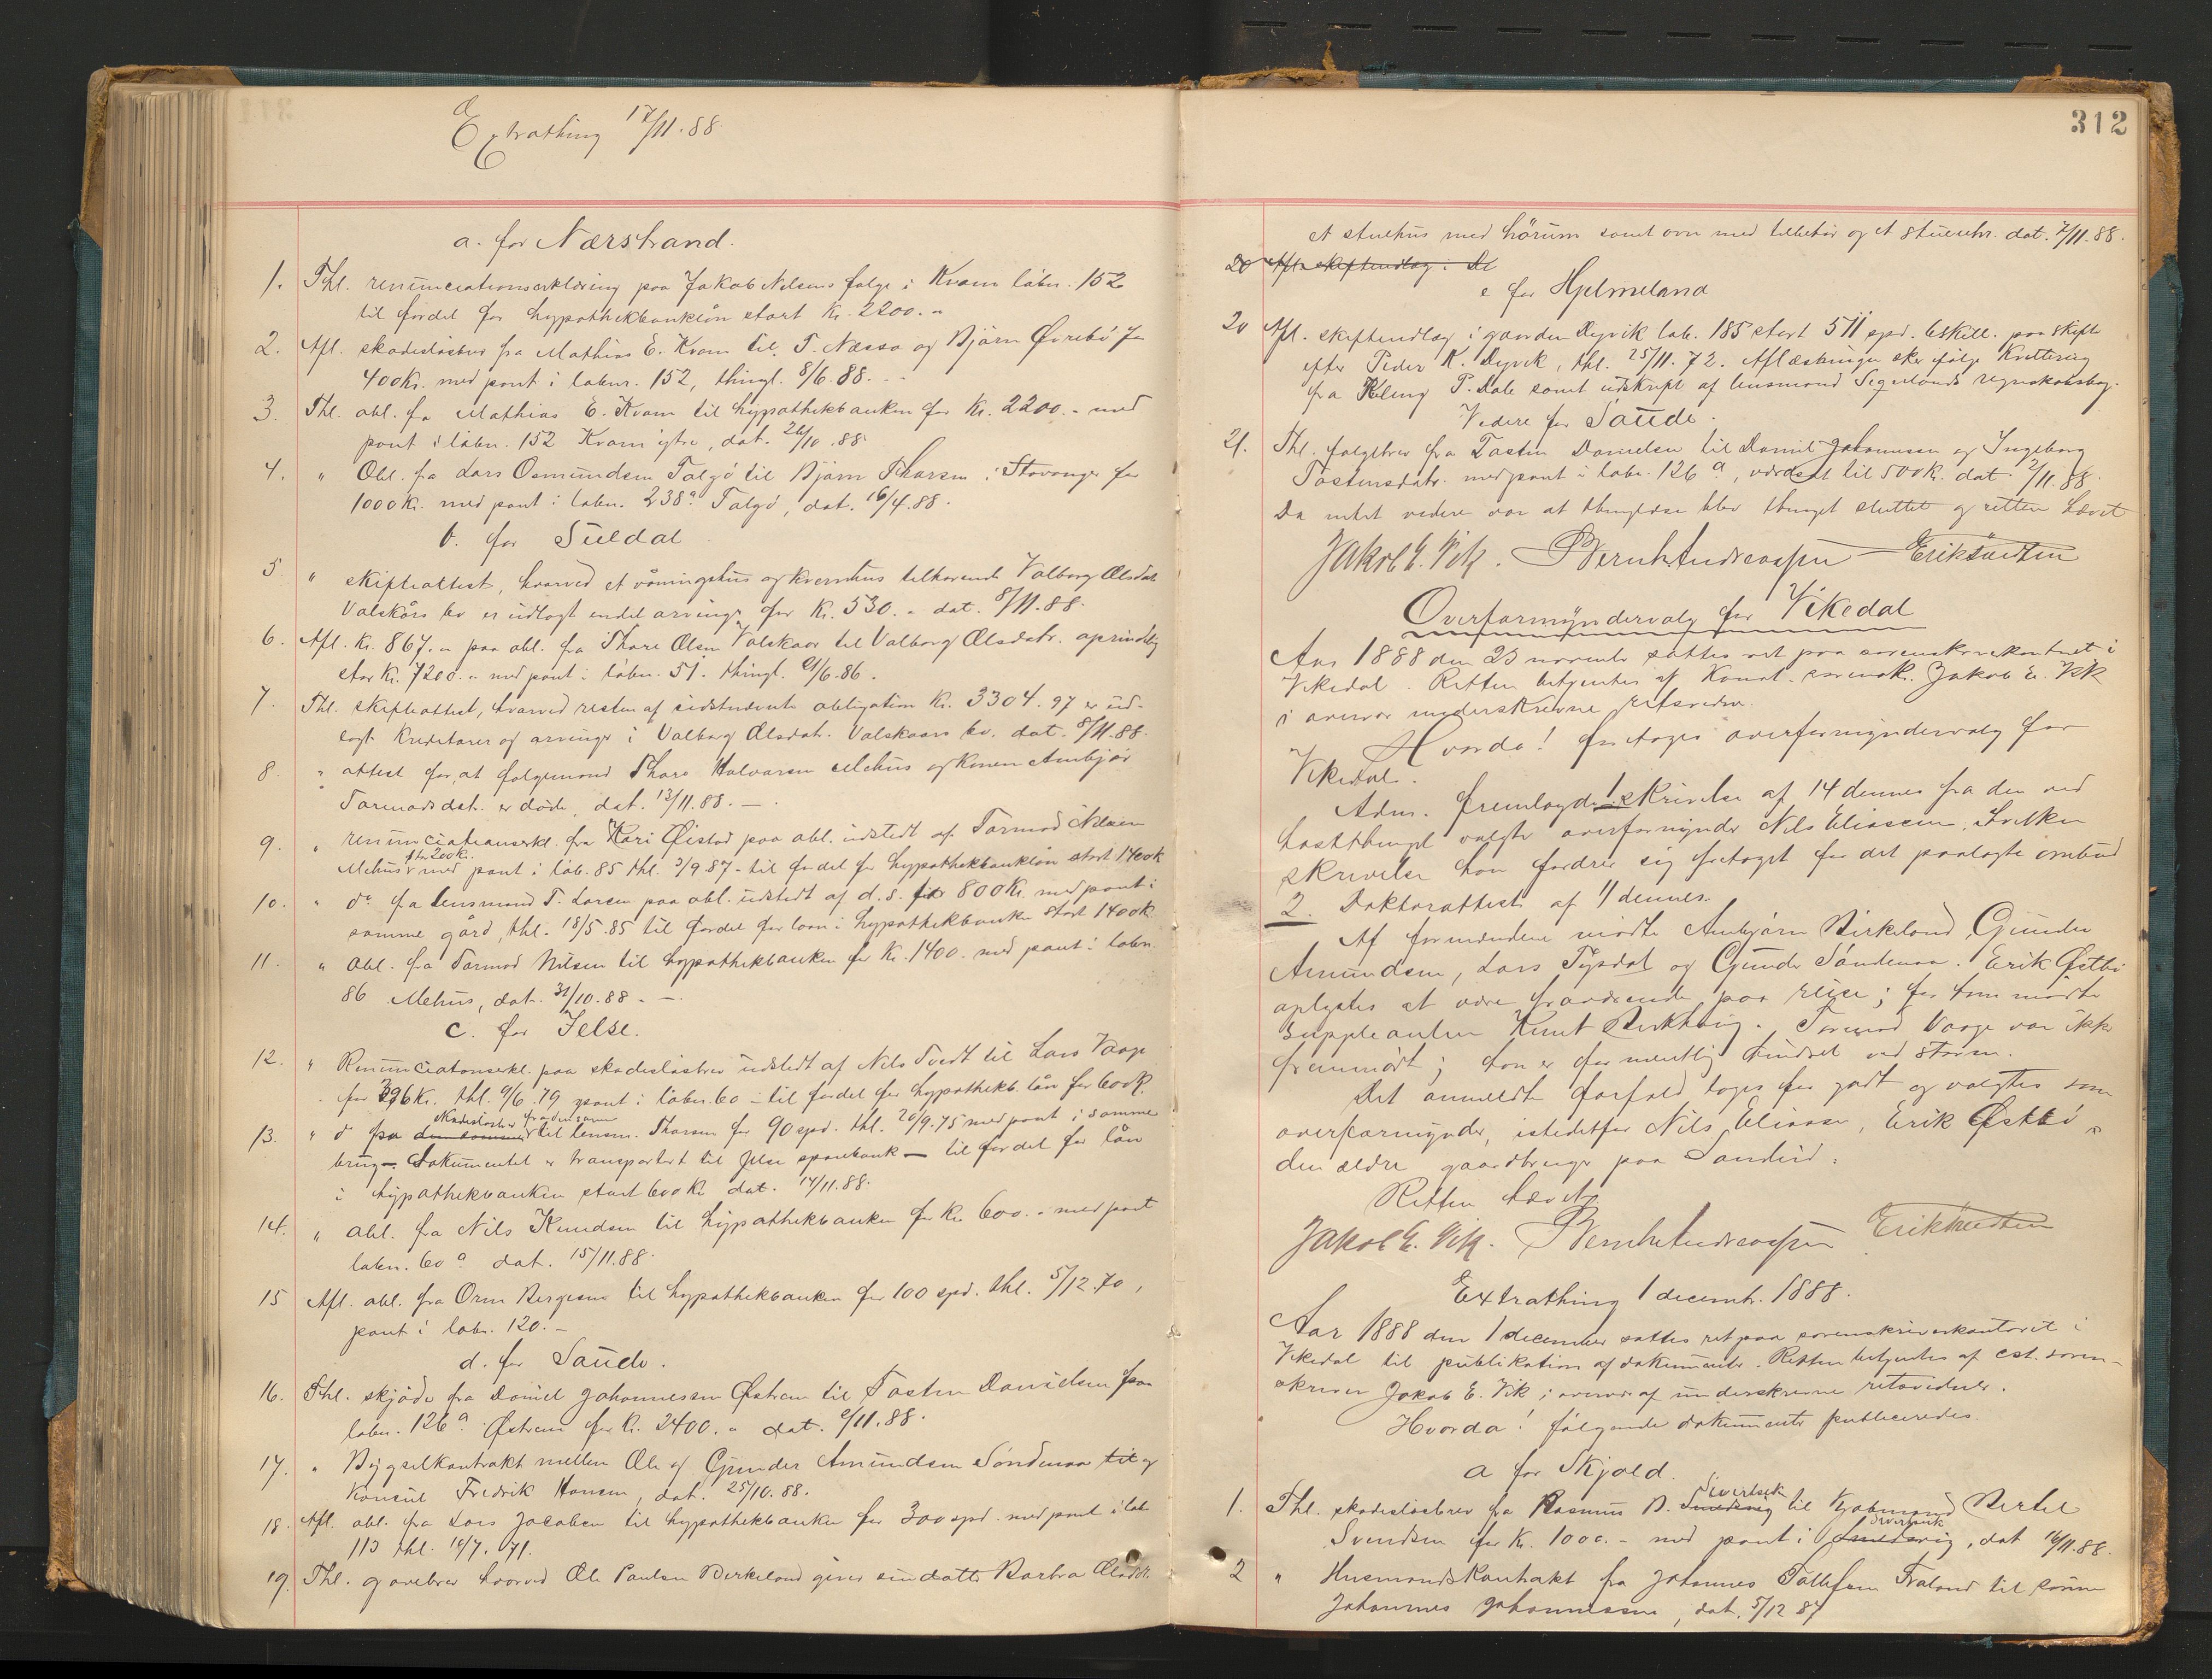 Extrathing 17/11.88.
a. for Nærstrand.
1. Thl. renunciationserklæring paa Jakob Nilsens følge i Kvam løbnr. 152
til fordel for hypothekbanklån stort Kr. 2200.-
2. Afl. skadesløsbrev fra Mathias E. Kvam til T. Næssa og Bjørn Øvrebø for
400 Kr. med pant i løbnr. 152, thingl. 8/6.88.
3. Thl. obl. fra Mathias E. Kvam til hypothekbanken for Kr. 2200.- med
pant i løbn. 152 Kvam ytre, dat. 26/10.88.
4. " Obl. fra Lars Osmundsen Talgø til Bjørn Tharsen i Stavanger for
1000 Kr. med pant i løbn. 238a Talgø, dat. 16/4.88.
b. for Suldal
5 " skifteattest, hvorved et våningshus og kvernhus tilhørende Valborg Olsdatr
Valskårs bo er udlagt endel arvinger for Kr. 530.- dat. 8/11.88.
6. Afl. Kr. 867.- paa obl. fra Thore Olsen Valskaar til Valborg Olsdatr. oprindelig
stor Kr. 7200.- med pant i løbn. 51. thingl. 21/6.86.
7. Thl. skifteattest, hvorved resten af sidstnævnte obligation Kr. 3304.97 er ud-
lagt kreditorer og arvinger i Valborg Olsdat. Valskaars bo. dat. 8/11.88.
8. " attest for, at følgemand Thore Halvorsen Mehus og konen Anbjør
Tormodsdat. er døde, dat. 13/11.88.-
9. " renunciationserkl. fra Kari Øistad paa obl. udstedt af Tormod Nilsen
Mehus for 200 k. med pant i løb. 85 thl. 3/9.87 - til fordel for hypothekbanklån stort 1400 k
10. " do fra lensmand T. Larsen paa obl. udstedt af d. s. for 800 Kr. med pant i
samme gård, thl. 18/5.85 til fordel for laan i hypothekbanken stort 1400 k
11. " Obl. fra Tormod Nilsen til hypothekbanken for Kr. 1400.- med pant i løbn.
86 Mehus, dat. 31/10.88.-
c. for Jelse.
12. " Renunciationserkl. paa skadesløsbrev udstedt af Nils Tvedt til Lars Vaage
for 396 Kr. thl. 9/6.79 pant i løbn. 60 - til fordel for hypothekb. lån for 600 K.
13. " do fra den samme skadesløsbr fra den samme til lensm. Tharsen for 90 spd. thl. 20/9.75 med pant i samme
brug - Dokumentet er transportert til Jelse sparebank - til fordel for lån
i hypothekbanken stort 600 Kr. dat. 14/11.88.
14. " obl. fra Nils Knudsen til hypothekbanken for Kr. 600.- med pant
løbn. 60a dat. 15/11.88.
15 Afl. obl. fra Orm Bergesen til hypothekbanken for 100 spd. thl. 5/12.70,
pant i løbn. 120.-
d. for Saude.
16. Thl. skjøde fra Daniel Johannessen Østrem til Tosten Danielsen paa
løbn. 126a Østrem for Kr. 2400.- dat. 2/11.88.
17. " Bygselkontrakt mellem Ole og Gunder Amundsen Søndenaa til og
Konsul Fredrik Hansen, dat. 25/10.88.
18. Afl. obl. fra Lars Jacobsen til hypothekbanken for 300 spd. med pant i løb
113 thl. 14/7.71.
19. Thl. gavebrev hvorved Ole Paulsen Birkeland giver sin datter Barbra Olsdtr.
312
et stuehus med hørum samt ovn med tilbehør og et stueuhr. dat. 7/11.88.
20 Afl. skifteudlæg i De
e for Hjelmeland
20 Afl. skifteudlæg i gaarden Dyrvik løb. 185 stort 511 spd. 6 skill. paa skifte
efter Peder K. Dyrvik, thl. 25/11.72. Aflæsningen sker ifølge kvittering
fra P. Dale samt udskrift af lensmand regnskabsbog.
Videre for Saude.
21. Thl. følgebrev fra Tosten Danielsen til Daniel Johannessen og Ingeborg
Tostensdatr. med pant i løbn. 126a, værdsat til 500 Kr. dat. 2/11.88.
Da intet videre var at thinglæse blev thinget sluttet og retten hævet
Jakob E. Vik. Bernh Andreassen Erik
Overformyndervalg for Vikedal
Aar 1888 den 23 novembr sattes ret paa sorenskriverkontoret i
Vikedal. Retten betjentes af Konst. sorenskr. Jakob E. Vik
i overvær underskrevne retsvidner.
Hvorda! foretoges overformyndervalg for
Vikedal.
Adm. fremlagde 1 skrivelse af 14 dennes fra den ved
høstthinget valgte overformynder Nils Eliassen, hvilken
skrivelse han fordrer sig fritaget for det paalagte ombud
2. Doktorattest af 11 dennes.
Af formændene mødte Anbjørn Birkeland, Gunder
Amundsen, Lars Tysdal og Gunder Søndenaa. Erik Østbø
oplystes at være fraværende paa reise; for ham mødte
suppleanten Knut Birkhaug. Tormod Vaage var ikke
fremmødt; han er formentlig hindret ved storm.
Det anmeldte forfald toges for godt og valgtes som
overformynder, istedetfor Nils Eliassen, Erik Østbø
den ældre gaardbruger paa Sandeid.
Retten hævet
Jakob E. Vik. Bernh Andreassen Erik
Extrathing 1 decembr. 1888.
Aar 1888 den 1 december sattes ret paa sorenskriverkontoret i
Vikedal til publikation af dokumenter. Retten betjentes af cst. soren-
skriver Jakob E. Vik i overvær af underskrevne retsvidner.
Hvorda! følgende dokumenter publiceredes.
a for Skjold.
1. Thl. skadesløsbrev fra Rasmus B. til kjøbmand Bertel
Svendsen for Kr. 1000.- med pant i , dat 14/11.88.
2 " Husmandskontrakt fra Johannes Tollefsen Fraland til sønnen
Johannes Johannessen, dat. 5/12 87